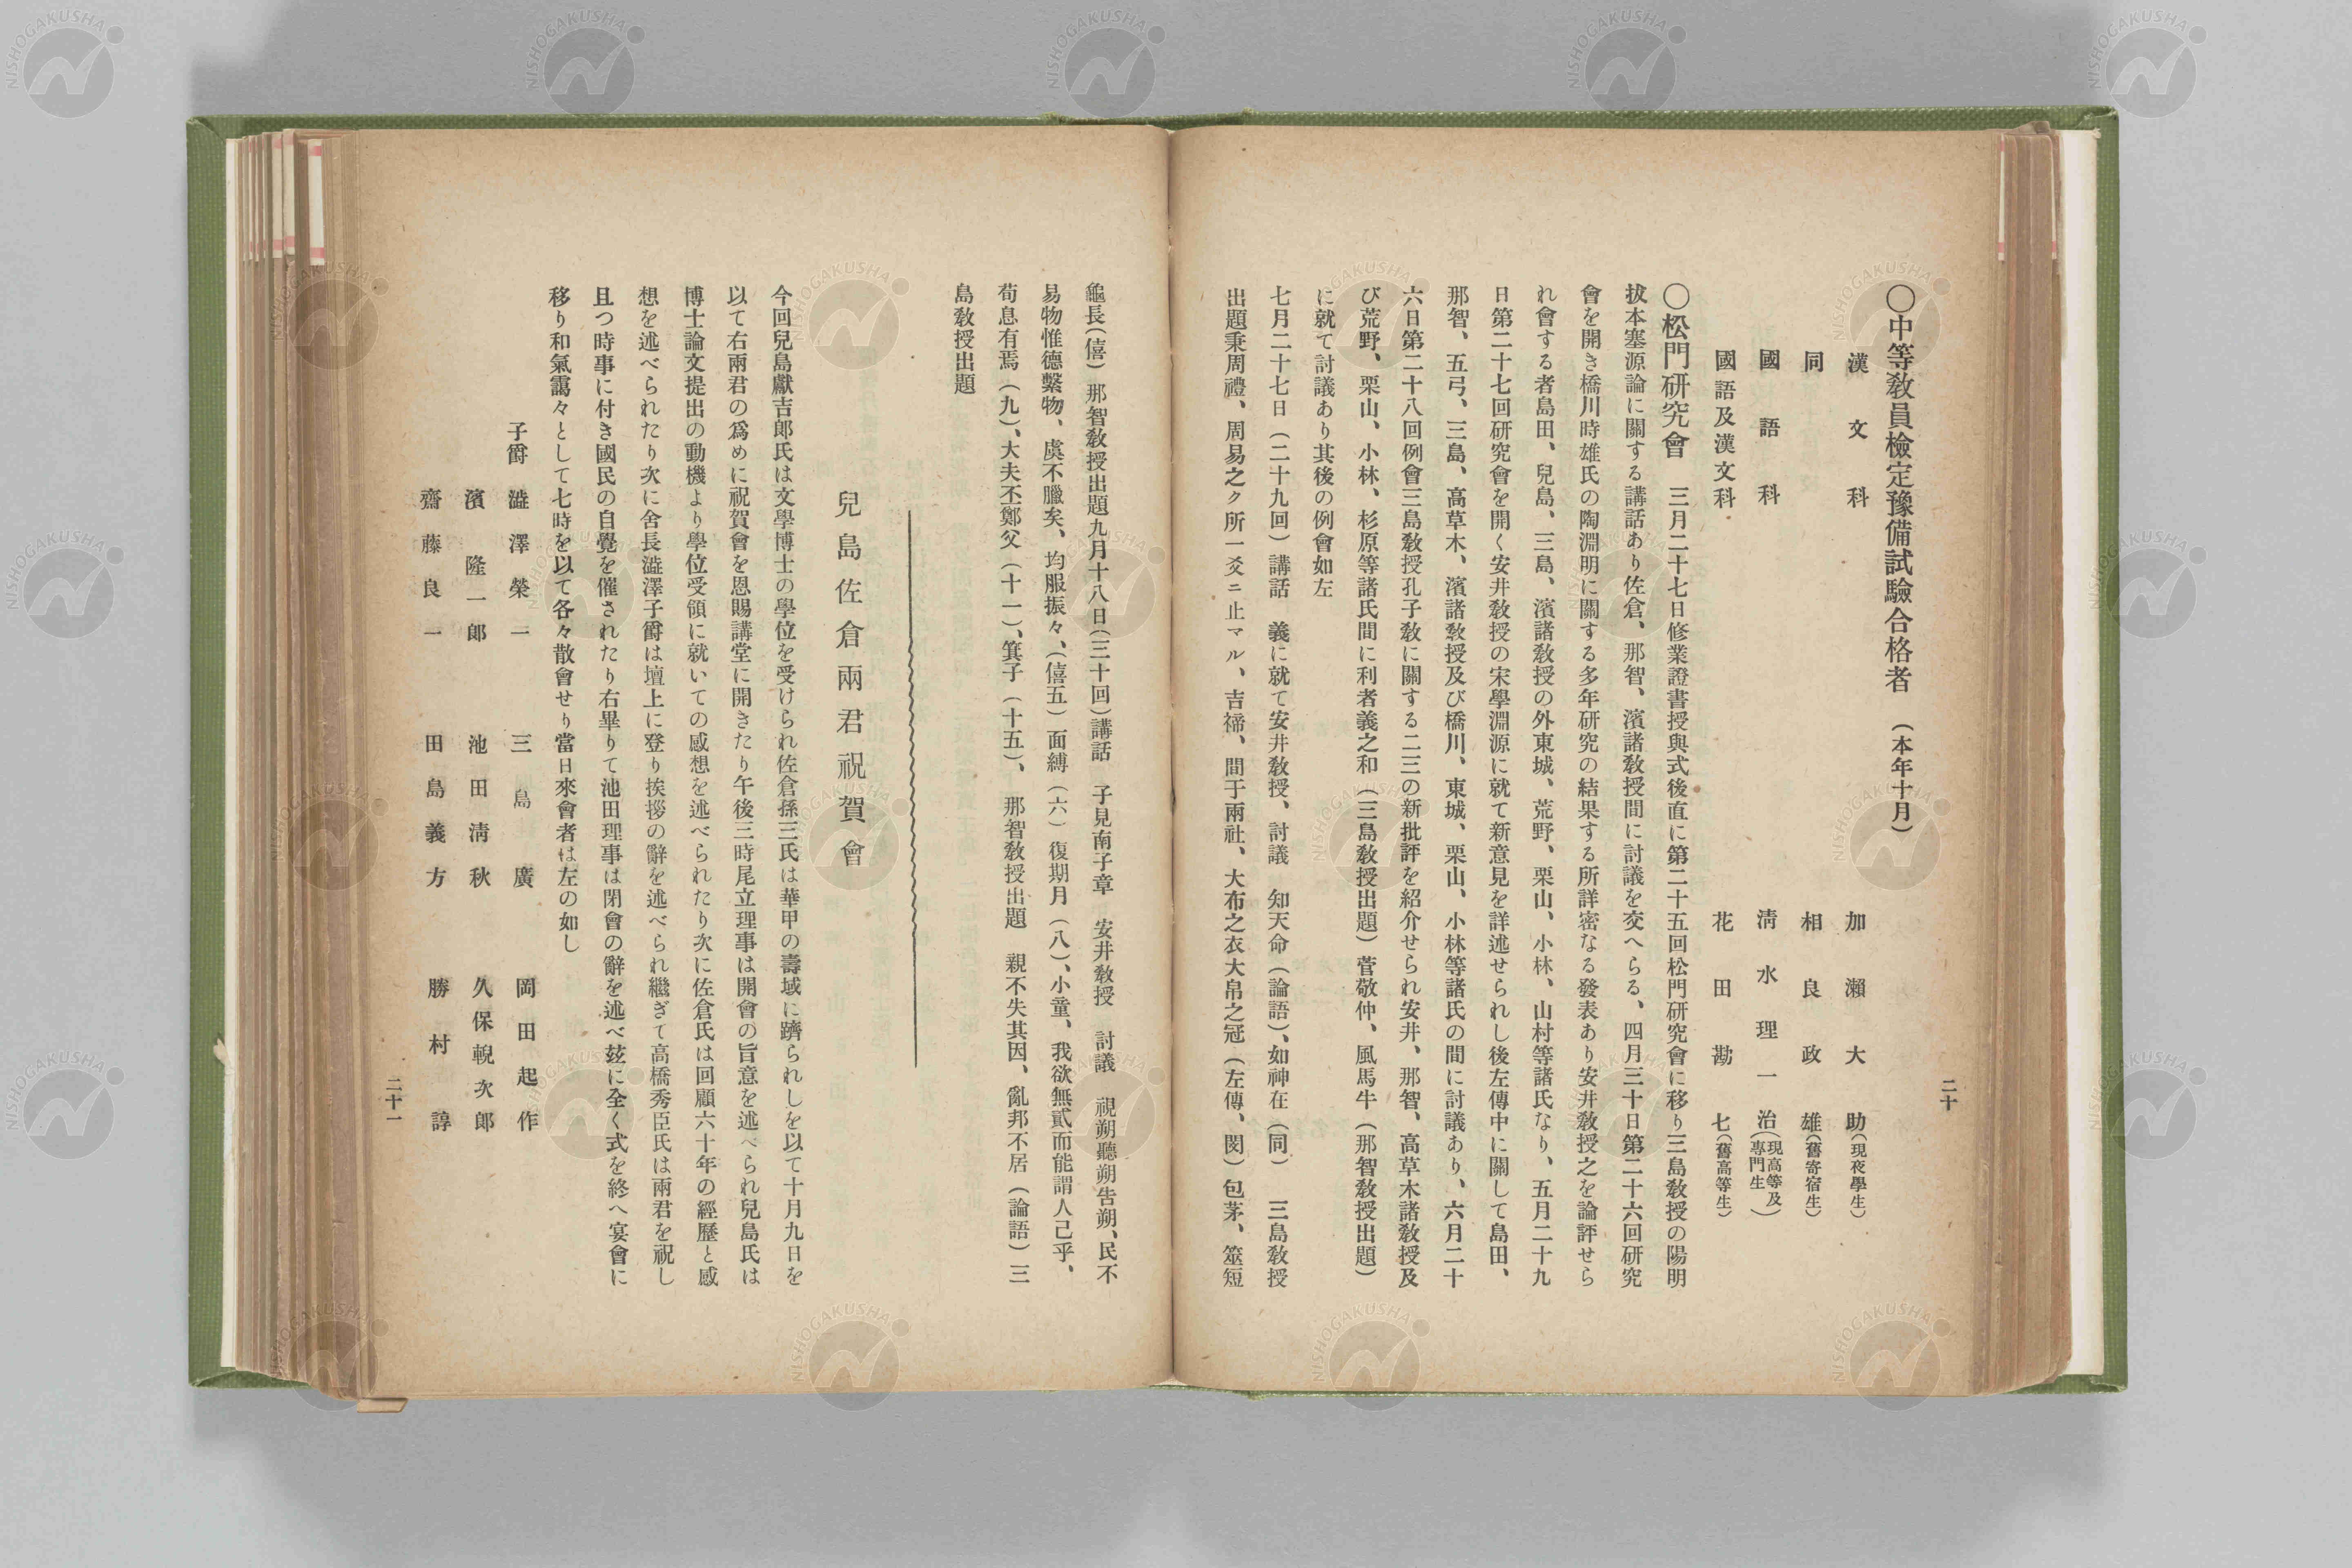 二十
〇中等敎員檢定豫備試驗合格者　（本年十月）
漢文科　加瀨大助（現夜學生）
同　相良政雄（舊寄宿生）
國語科　淸水理一治（現高等及專門生）
國語及漢文科　花田勘七（舊高等生）
〇松門硏究會　三月二十七日修業證書授與式後直に第二十五回松門硏究會に移り三島敎授の陽明
拔本塞源論に關する講話あり佐倉、那智、濱諸敎授間に討議を交へらる、四月三十日第二十六回硏究
會を開き橋川時雄氏の陶淵明に關する多年硏究の結果する所詳密なる發表あり安井敎授之を論評せら
れ會する者島田、兒島、三島、濱諸敎授の外東城、荒野、栗山、小林、山村等諸氏なり、五月二十九
日第二十七回硏究會を開く安井敎授の宋學淵源に就て新意見を詳述せられし後左傳中に關して島田、
那智、五弓、三島、高草木、濱諸敎授及び橋川、東城、栗山、小林等諸氏の間に討議あり、六月二十
六日第二十八回例會三島敎授孔子敎に關する二三の新批評を紹介せられ安井、那智、高草木諸敎授及
び荒野、栗山、小林、杉原等諸氏間に利者義之和（三島敎授出題）菅敬仲、風馬牛（那智敎授出題）
に就て討議あり其後の例會如左
七月二十七日（二十九回）講話　義に就て安井敎授、討議　知天命（論語）、如神在（同）　三島敎授
出題秉周禮、周易之ク所一爻ニ止マル、吉禘、間于兩社、大布之衣大帛之冠（左傳、閔）包茅、筮短
龜長（僖）那智敎授出題九月十八日（三十回）講話　子見南子章　安井敎授　討議　視朔聽朔告朔、民不
易物惟德繫物、虞不臘矣、均服振々、（僖五）面縛（六）復期月（八）、小童、我欲無貳而能謂人己乎、
荀息有焉（九）、大夫丕鄭父（十一）、箕子（十五）、　那智敎授出題　親不失其因、亂邦不居（論語）三
島敎授出題
兒島佐倉兩君祝賀會
今回兒島獻吉郎氏は文學博士の學位を受けられ佐倉孫三氏は華甲の壽域に躋られしを以て十月九日を
以て右兩君の爲めに祝賀會を恩賜講堂に開きたり午後三時尾立理事は開會の旨意を述べられ兒島氏は
博士論文提出の動機より學位受領に就いての感想を述べられたり次に佐倉氏は回顧六十年の經歷と感
想を述べられたり次に舍長澁澤子爵は壇上に登り挨拶の辭を述べられ繼ぎて高橋秀臣氏は兩君を祝し
且つ時事に付き國民の自覺を催されたり右畢りて池田理事は閉會の辭を述べ玆に全く式を終へ宴會に
移り和氣靄々として七時を以て各々散會せり當日來會者は左の如し
子爵　澁澤榮一　三島廣　岡田起作
濱隆一郎　池田淸秋　久保輗次郎
齋藤良一　田島義方　勝村諄
二十一